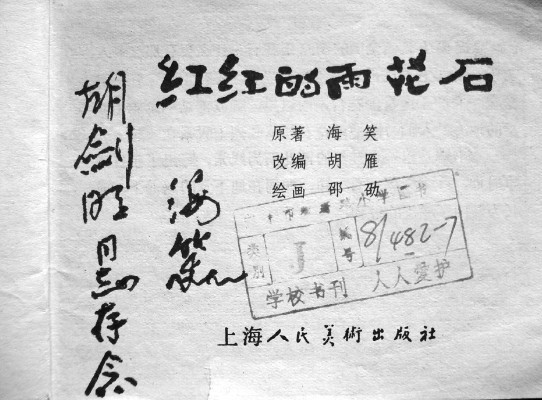 红红的雨花石
原著 海笑
改编 胡雁
绘画 邵劭
胡剑旺同志存念
海笑
类别 J 书号 81482-7
学校书刊 人人爱护
上海人民美術出版社